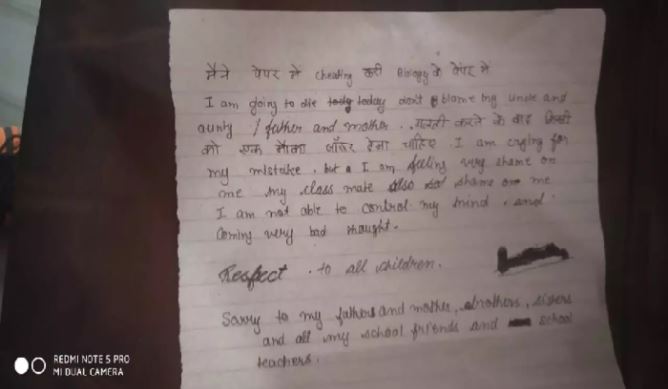 मैने पेपर में cheating करी Biology के पेपर में
I am going to die today don't blame my uncle and
aunty / father and mother . . गलती करने के बाद किसी
को एक मौका और देना चाहिए . I am crying for
my mistake . but I am feeling very shame on
me my class mate also shame on me
I am not able to control my mind . and
coming very bad thought .
Respect . to all children .
Sorry to my fathers and mother, brothers, sisters
and all my school friends and school
teachers .
REDMI NOTE 5 PRO
MI DUAL CAMERA